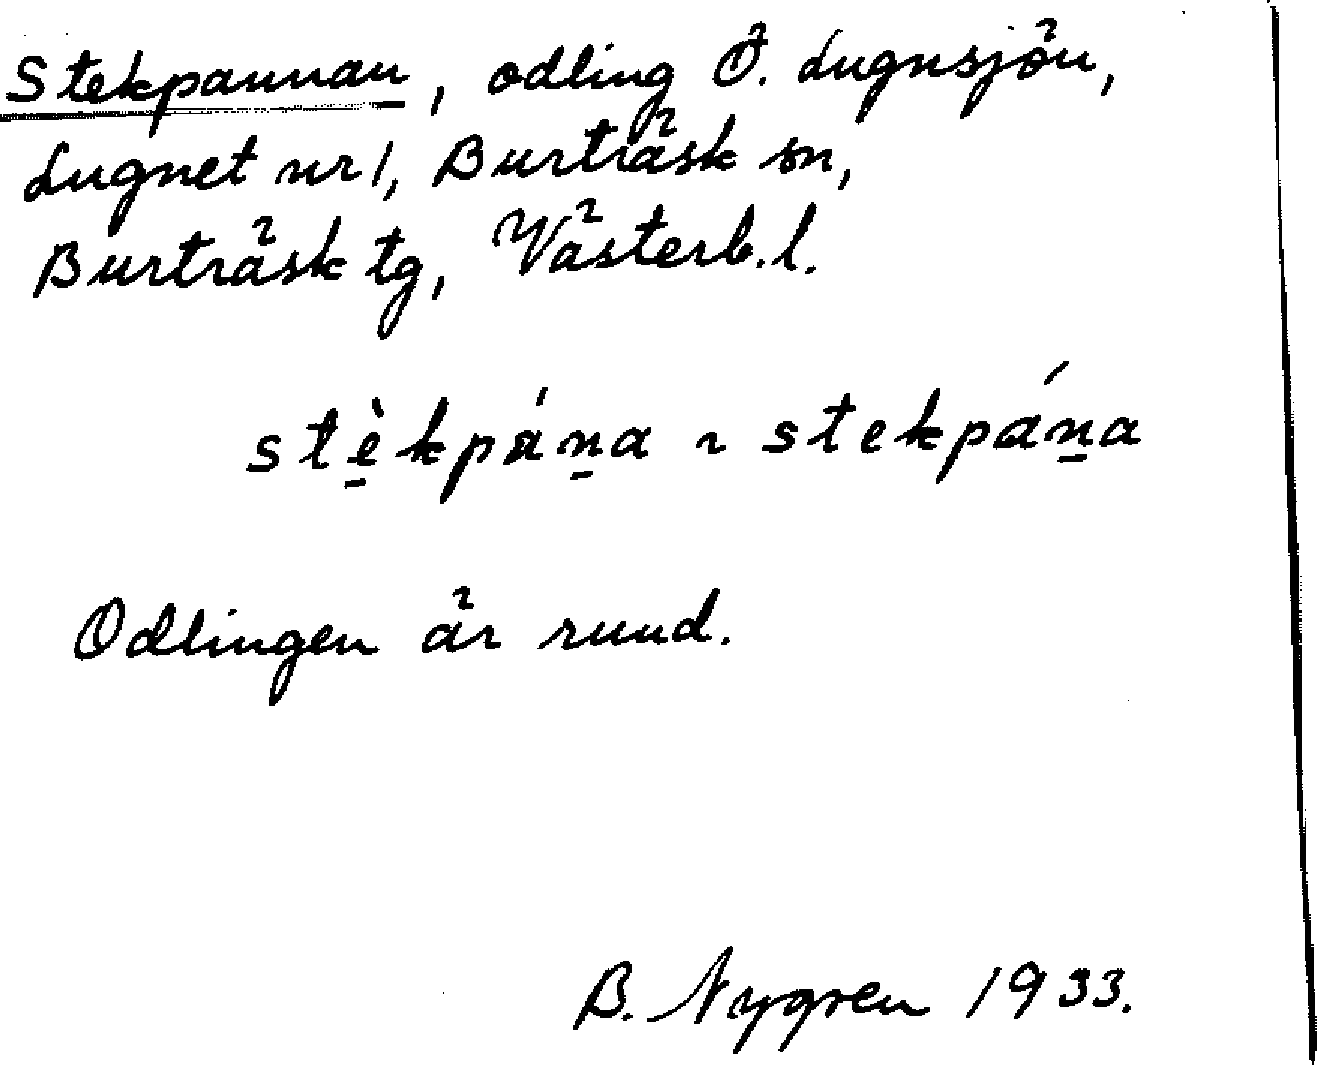 Stekpannan, odling Ö. Lugnsjön,
Lugnet nr 1, Burträsk sn,
Burträsk tg, Västerb. l.
stè̱kpán̠a ~ stekpán̠a
Odlingen är rund.
B. Nygren 1933.